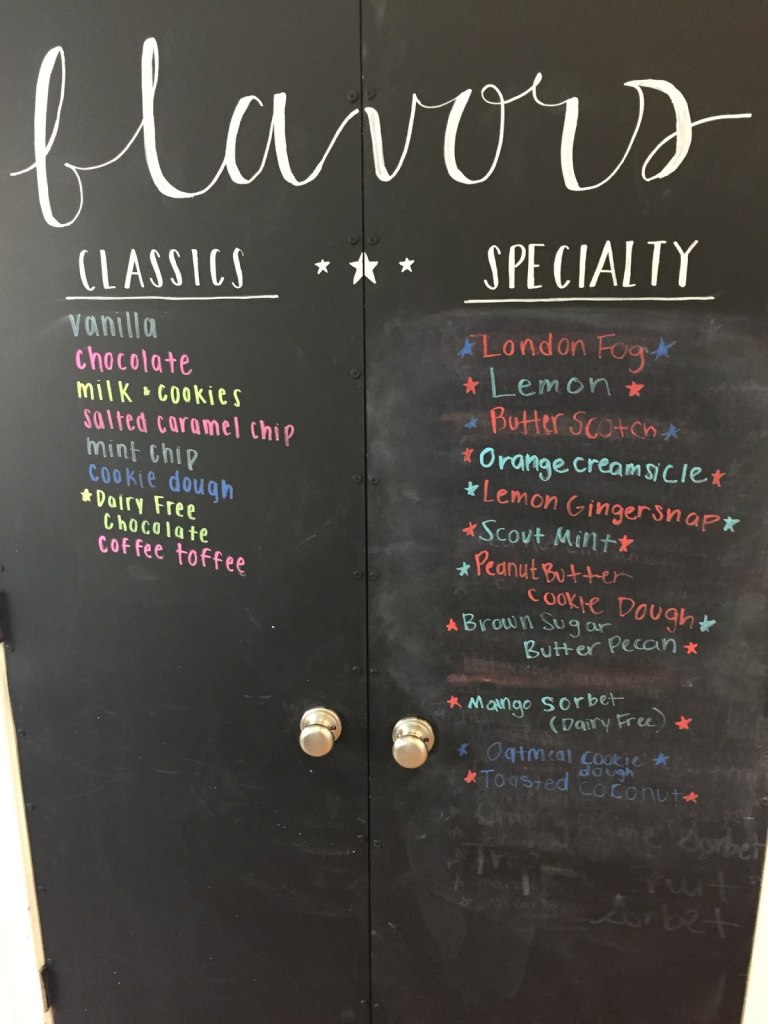 flavors
CLASSICS
vanilla
chocolate
milk & cookies
salted caramel chip
mint chip
cookie dough
*Dairy Free
Chocolate
coffee toffee
SPECIALTY
London Fog
Lemon
Butter Scotch
Orange creamsicle
Lemon Gingersnap
Scout Mint
Peanut Butter
Cookie Dough
Brown Sugar
Butter Pecan
Mango Sorbet
(Dairy Free)
Oatmeal cookie
dough
Toasted Coconut
Sorbet
Sorbet